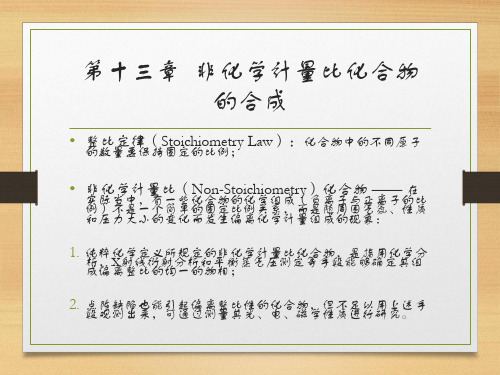 第十三章 非化学计量比化合物
的合成
• 整比定律（Stoichiometry Law）：化合物中的不同原子
的数量要保持固定的比例；
• 非化学计量比（Non-Stoichiometry）化合物 —— 在
实际当中，有一些化合物的化学组成（负离子与正离子的比
例）不是一个简单的固定比例关系，而是随周围气氛、性质
和压力大小的变化而发生偏离化学计量组成的现象；
1. 纯粹化学定义所规定的非化学计量比化合物，是指用化学分
析、X射线衍射分析和平衡蒸气压测定等手段能够确定其组
成偏离整比的均一的物相；
2. 点阵缺陷也能引起偏离整比性的化合物，但不足以用上述手
段观测出来，可通过测量其光、电、磁学性质进行研究。